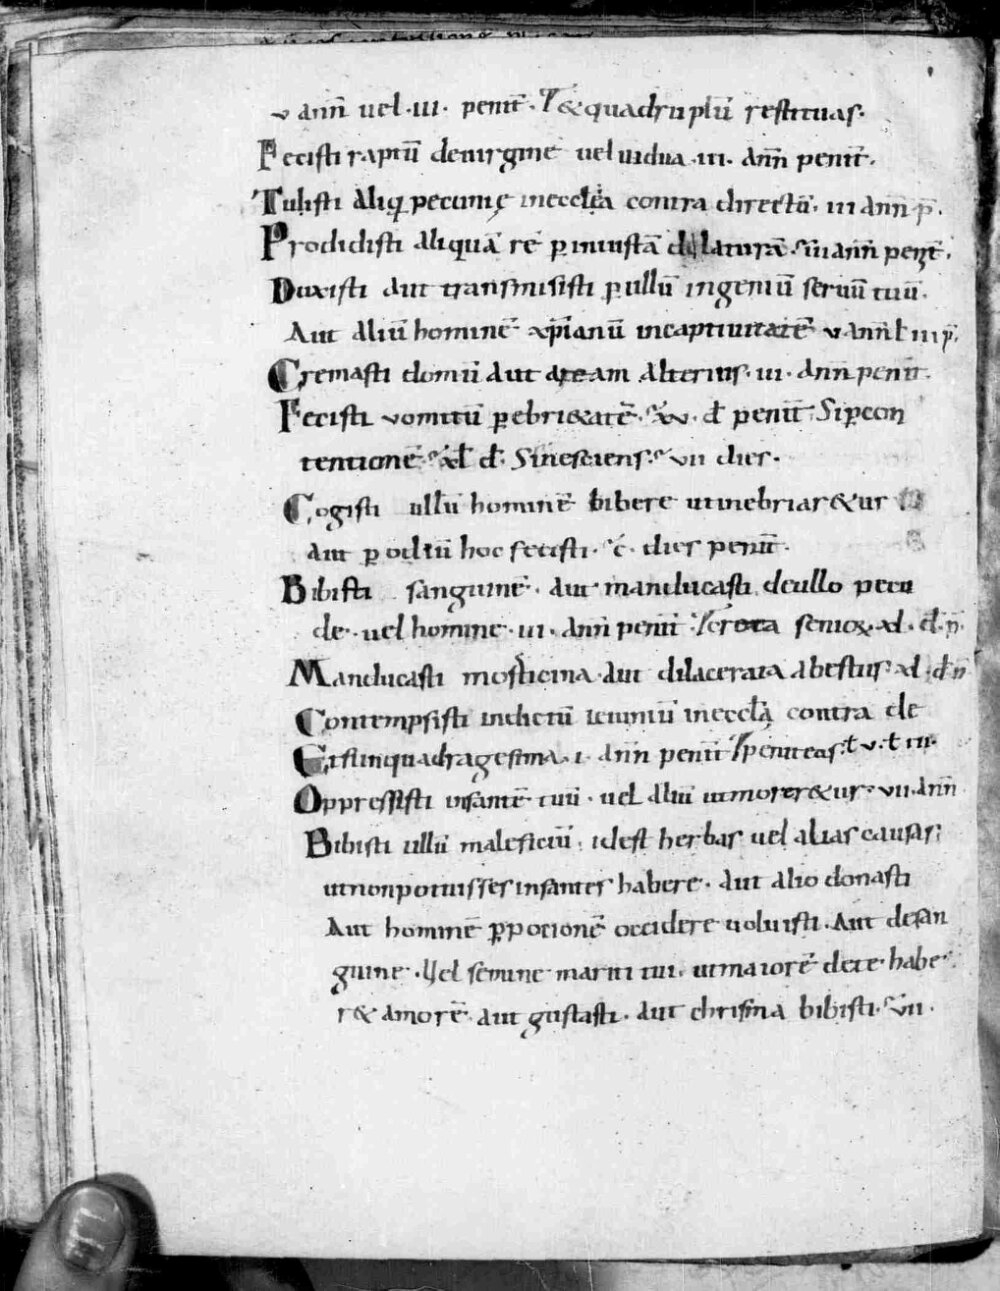 v ann̄ uel .iii. penit̄. & quadruplū restituas.
Fecisti raptū deuirgine uel uidua .iii. ann̄ penit̄.
Tulisti aliq̨ pecunię inecclęa contra directū. iii ann̄ p̄.
Prodidisti aliquā rē p̱ iniustā delaturā. s̄ iii ann̄ penit̄.
Duxisti aut transmisisti p̱ ullū ingeniū seruū tuū.
Aut aliū hominē xp̄ianū incaptiuitatē v ann̄ ł iii p̄.
Cremasti domū aut aream alterius. iii. ann̄ penit̄.
Fecisti vomitū p̱ ebri&atē. s̄ xv. d̄ penit̄. Si p̱ con
tentionē s̄ xl d̄. Sinesciens. s̄ vii dies.
Cogisti ullū hominē bibere utinebriar&ur
aut p̱ odiū hoc fecisti. s̄ c. dies penit̄.
Bibisti sanguinē. aut manducasti deullo pecu
de. uel homine. iii. ann̄ penit̄ seniox. xl. d̄. n̄.
Manducasti morticina. aut dilacerata abestiis xl. d̄ n̄
Contempsisti indictū ieiuniū inecclą contra de
Et sinquadragesima. i. ann̄ penit̄ peniteas. ł v. ł iii.
Oppressisti infantē tuū. uel aliū utmorer&ur. vii. ann̄
Bibisti ullū maleficiū. idest herbas uel alias causas;
utnonpotuisses infantes habere. aut alio donasti
Aut hominē p̱ potionē occidere uoluisti. Aut desan
guine. Uel semine mariti tui. utmaiorē dete habe
r& amorē aut gustasti. aut chrisma bibisti. s̄ vii.